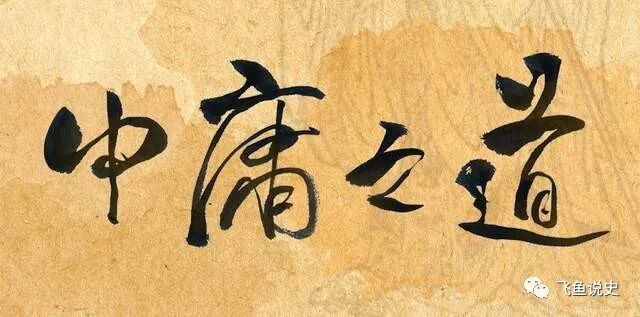 中庸之道
飞鱼说史